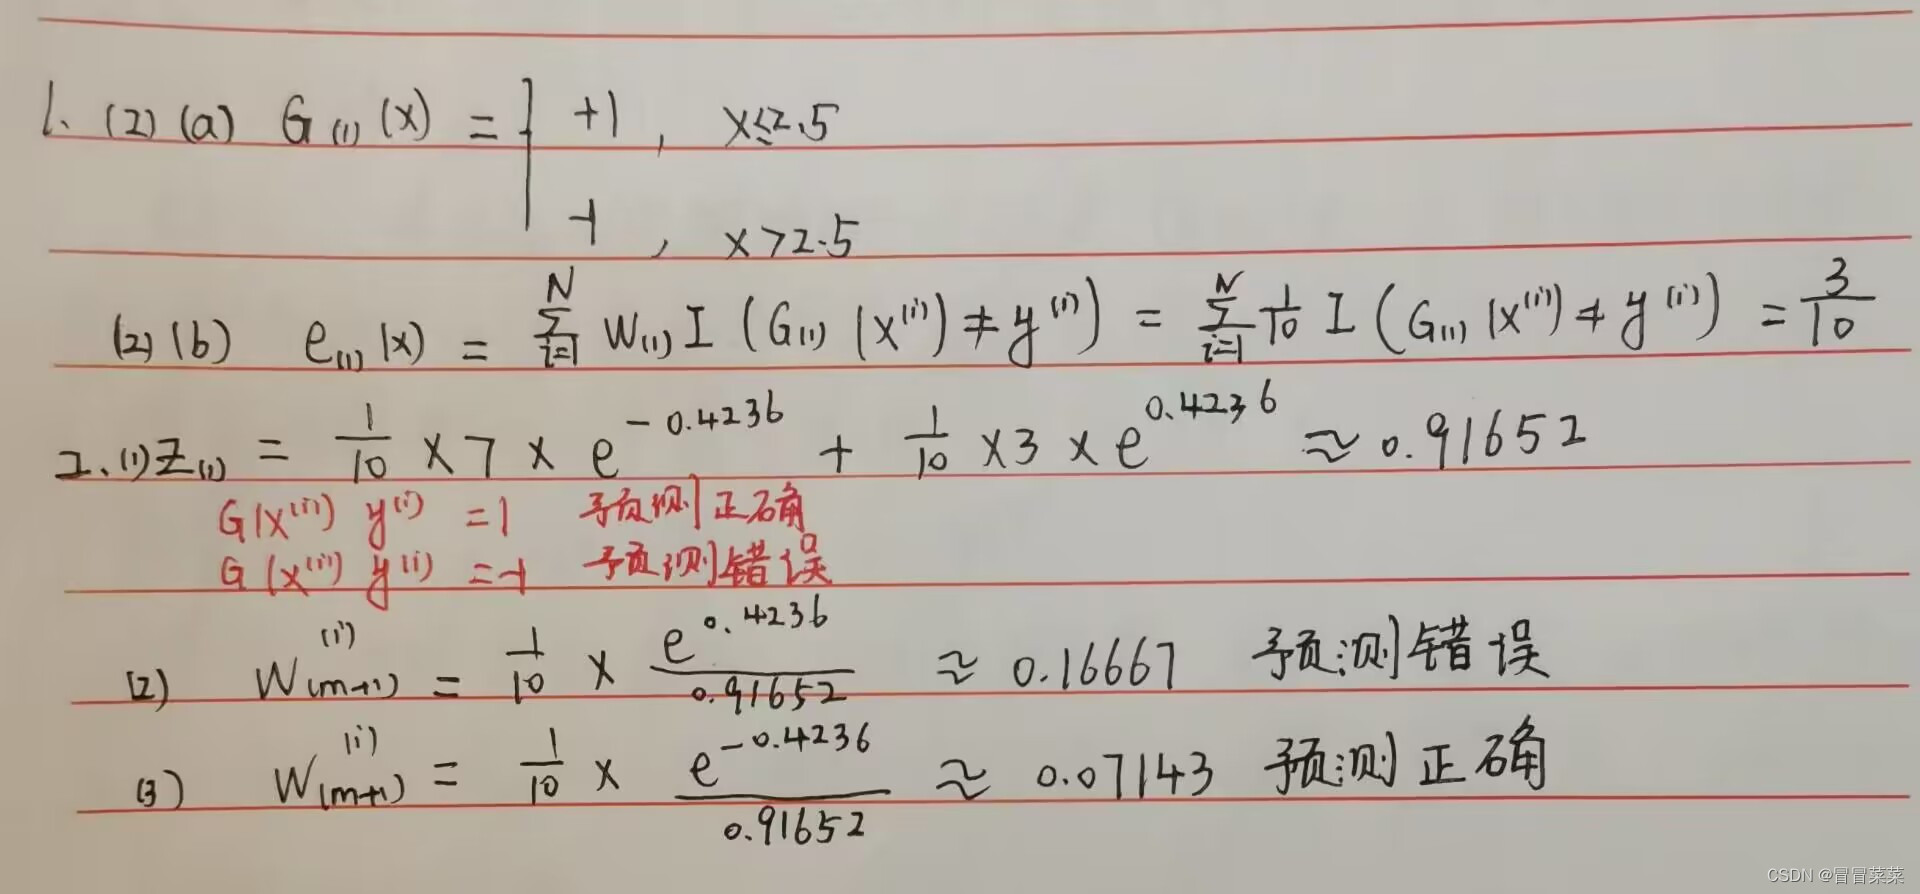 1. (2) (a) G₍₁₎(x) = { +1, x≤2.5
-1, x>2.5
(2)(b) e₍₁₎(x) = ∑ᵢ₌₁ᴺ W₍₁₎ I (G₍₁₎(x⁽ⁱ⁾) ≠ y⁽ⁱ⁾) = ∑ᵢ₌₁ᴺ 1/10 I (G₍₁₎(x⁽ⁱ⁾) ≠ y⁽ⁱ⁾) = 3/10
2. (1) Z₍₁₎ = 1/10 × 7 × e^(-0.4236) + 1/10 × 3 × e^(0.4236) ≈ 0.91652
G(x⁽ⁱ⁾) y⁽ⁱ⁾ = 1 预测正确
G(x⁽ⁱ⁾) y⁽ⁱ⁾ = -1 预测错误
(2) W₍ₘ₊₁₎⁽ⁱ⁾ = 1/10 × e^(0.4236)/0.91652 ≈ 0.16667 预测错误
(3) W₍ₘ₊₁₎⁽ⁱ⁾ = 1/10 × e^(-0.4236)/0.91652 ≈ 0.07143 预测正确
CSDN @冒冒菜菜